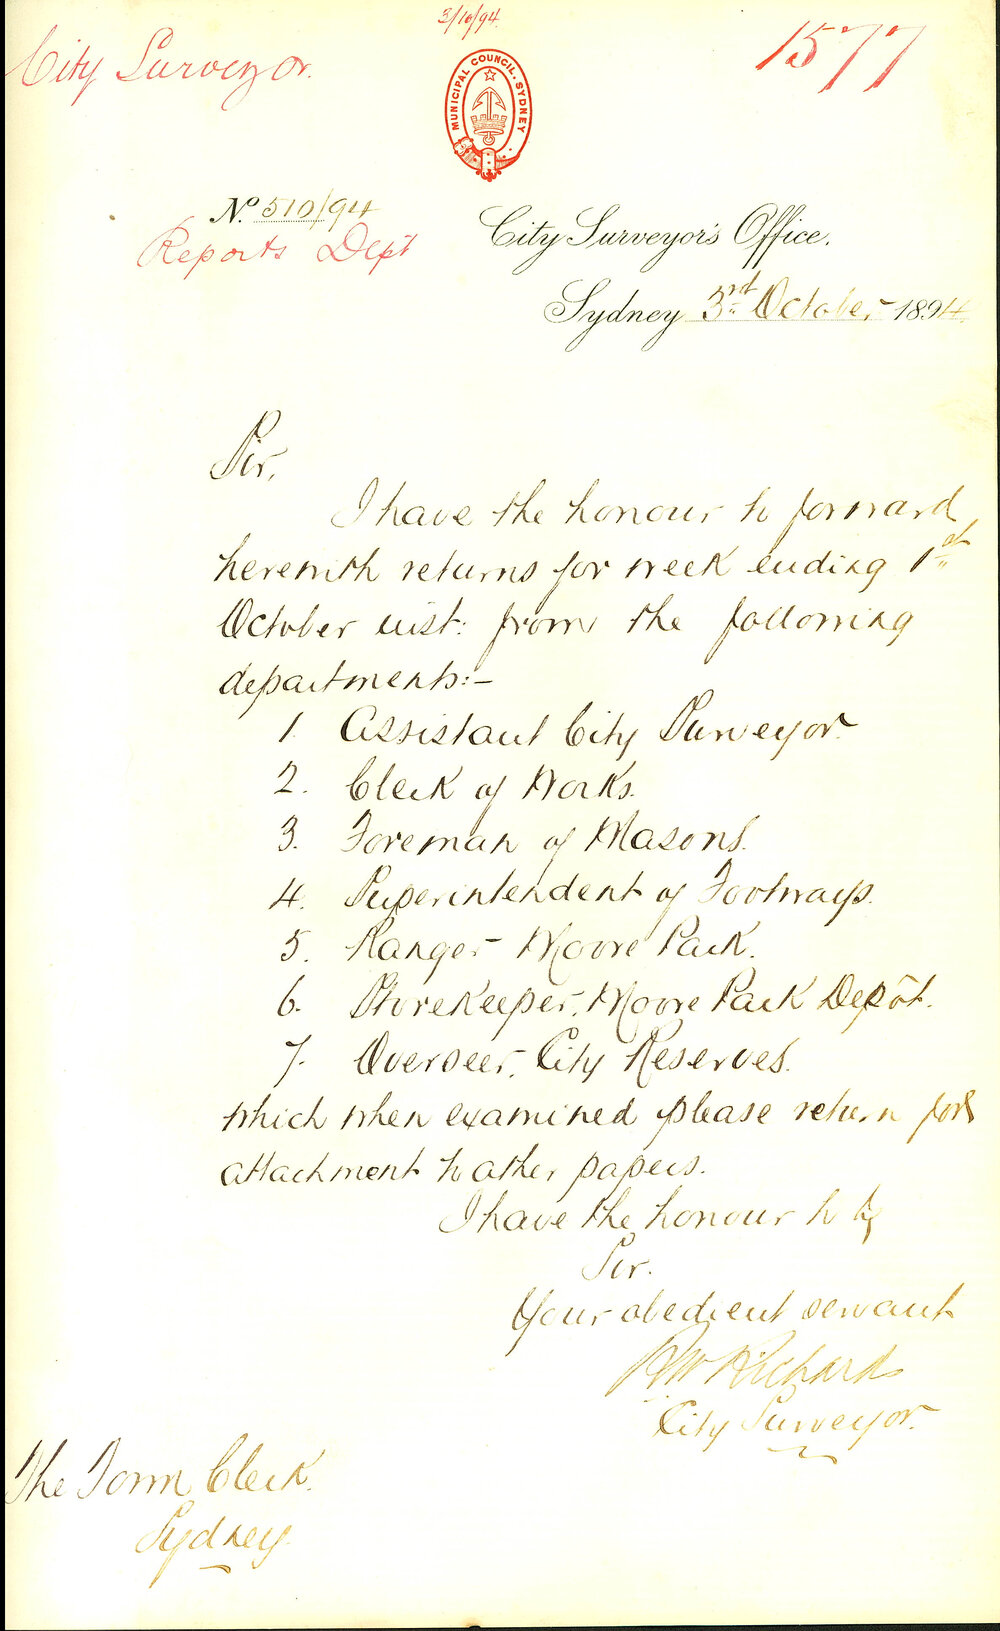 3/10/94.
City Surveyor.
1577
MUNICIPAL COUNCIL. SYDNEY
No. 510/94
Reports Dept
City Surveyor's Office.
Sydney 3rd October 1894.
Sir,
I have the honour to forward
herewith returns for week ending 1st
October inst: from the following
departments:-
1. Assistant City Surveyor.
2. Clerk of Works.
3. Foreman of Masons.
4. Superintendent of Footways.
5. Ranger Moore Park.
6. Storekeeper, Moore Park Depôt.
7. Overseer, City Reserves.
which when examined please return for
attachment to other papers.
I have the honour to be
Sir.
Your obedient servant
R W Richards
City Surveyor.
The Town Clerk.
Sydney